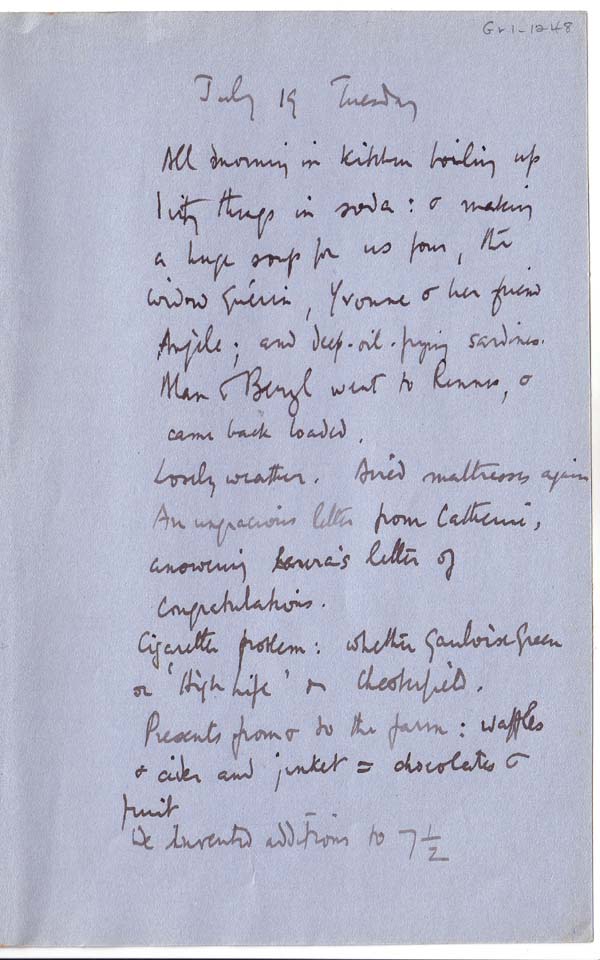 Gr1-1248
July 19 Tuesday
All morning in kitchen boiling up
dirty things in soda: & making
a huge soup for us four, the
widow Guérin, Yvonne & her friend
Angèle; and deep-oil-frying sardines.
Alan & Beryl went to Rennes, &
came back loaded.
Lovely weather. Aired mattresses again
An ungracious letter from Catherine,
answering Laura's letter of
congratulations.
Cigarette problem: whether Gauloise Green
or 'High Life' or Chesterfield.
Presents from & to the farm: waffles
& cider and junket = chocolates &
fruit
We invented additions to 7½